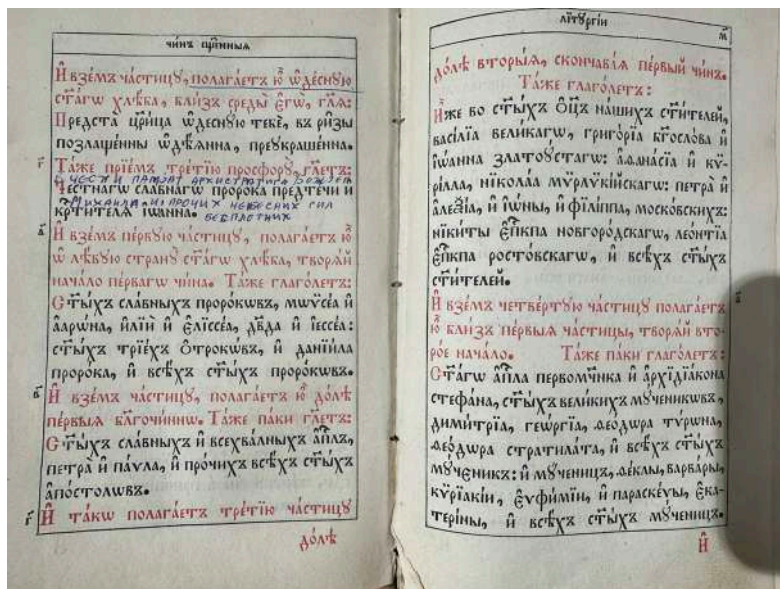 чи́нъ сщ҃е́нныѧ
И҆ взе́мъ части́цꙋ, полага́етъ ю҆̀ ѡ҆деснꙋ́ю
ст҃а́гѡ хлѣ́ба, бли́зъ среды̀ є҆гѡ̀, гл҃ѧ:
Предста̀ цр҃и́ца ѡ҆деснꙋ́ю тебѐ, въ ри̑зы
позлаще́нны ѡ҆дѣ́ѧнна, преꙋкраше́нна.
г҃.
Та́же прїе́мъ тре́тїю просфорꙋ̀, гл҃етъ:
В ЧЕСТЬ И ПАМЯТ АРХИСТРАТИГА БОЖІЕГО
Честна́гѡ сла́внагѡ проро́ка предте́чи и҆
МИХАИЛА И ПРОЧИХ НЕБЕСНИХ СИЛ
кр҃ти́телѧ і҆ѡа́нна.
БЕЗПЛОТНИХ
И҆ взе́мъ пе́рвꙋю части́цꙋ, полага́етъ ю҆̀
ѡ҆ лѣ́вꙋю странꙋ̀ ст҃а́гѡ хлѣ́ба, творѧ́й
нача́ло пе́рвагѡ чи́на. Та́же глаго́летъ:
Ст҃ы́хъ сла́вныхъ проро́кѡвъ, мѡѷсе́а и҆
а҆арѡ́на, и҆лїѝ и҆ є҆лїссе́а, дв҃да и҆ і҆ессе́а:
ст҃ы́хъ трїе́хъ ѻ҆́трокѡвъ, и҆ данїи́ла
проро́ка, и҆ всѣ́хъ ст҃ы́хъ проро́кѡвъ.
И҆ взе́мъ части́цꙋ, полага́етъ ю҆̀ до́лѣ
пе́рвыѧ бл҃гочи́ннѡ. Та́же па́ки гл҃етъ:
Ст҃ы́хъ сла́вныхъ и҆ всехва́льныхъ а҆пⷭ҇лъ,
петра̀ и҆ па́ѵла, и҆ про́чихъ всѣ́хъ ст҃ы́хъ
а҆по́столѡвъ.
И҆ та́кѡ полага́етъ тре́тїю части́цꙋ
до́лѣ
лїтꙋргі́и
до́лѣ вторы́ѧ, сконча́вѧ пе́рвый чи́нъ.
Та́же глаго́летъ:
И҆̀же во ст҃ы́хъ ѻ҆ц҃ъ на́шихъ ст҃и́телей,
васі́лїа вели́кагѡ, григо́рїа бг҃осло́ва и҆
і҆ѡа́нна златоꙋ́стагѡ: а҆ѳана́сїа и҆ кѷ-
рі́лла, нїкола́а мѷрлѷкі́йскагѡ: петра̀ и҆
а҆леѯі́а, и҆ і҆ѡ́ны, и҆ фїлі́ппа, моско́вскихъ:
нїки́ты є҆пⷭ҇кпа новгоро́дскагѡ, лео́нтїа
є҆пⷭ҇кпа росто́вскагѡ, и҆ всѣ́хъ ст҃ы́хъ
ст҃и́телей.
И҆ взе́мъ четве́ртꙋю части́цꙋ полага́етъ
ю҆̀ бли́зъ пе́рвыѧ части́цы, творѧ́й вто-
ро́е нача́ло. Та́же па́ки глаго́летъ:
Ст҃а́гѡ а҆пⷭ҇ла первомч҃нка и҆ а҆рхїдїа́кона
стефа́на, ст҃ы́хъ вели́кихъ мꙋ́ченикѡвъ,
дими́трїа, геѡ́ргїа, ѳео́дѡра тѵ́рѡна,
ѳео́дѡра стратила́та, и҆ всѣ́хъ ст҃ы́хъ
мꙋ́ченикъ: и҆ мꙋ́ченицъ, ѳе́клы, варва́ры,
кѷрїакі́и, є҆ѵфи́мїи, и҆ параске́ѵы, є҆ка-
тері́ны, и҆ всѣ́хъ ст҃ы́хъ мꙋ́ченицъ.
И҆